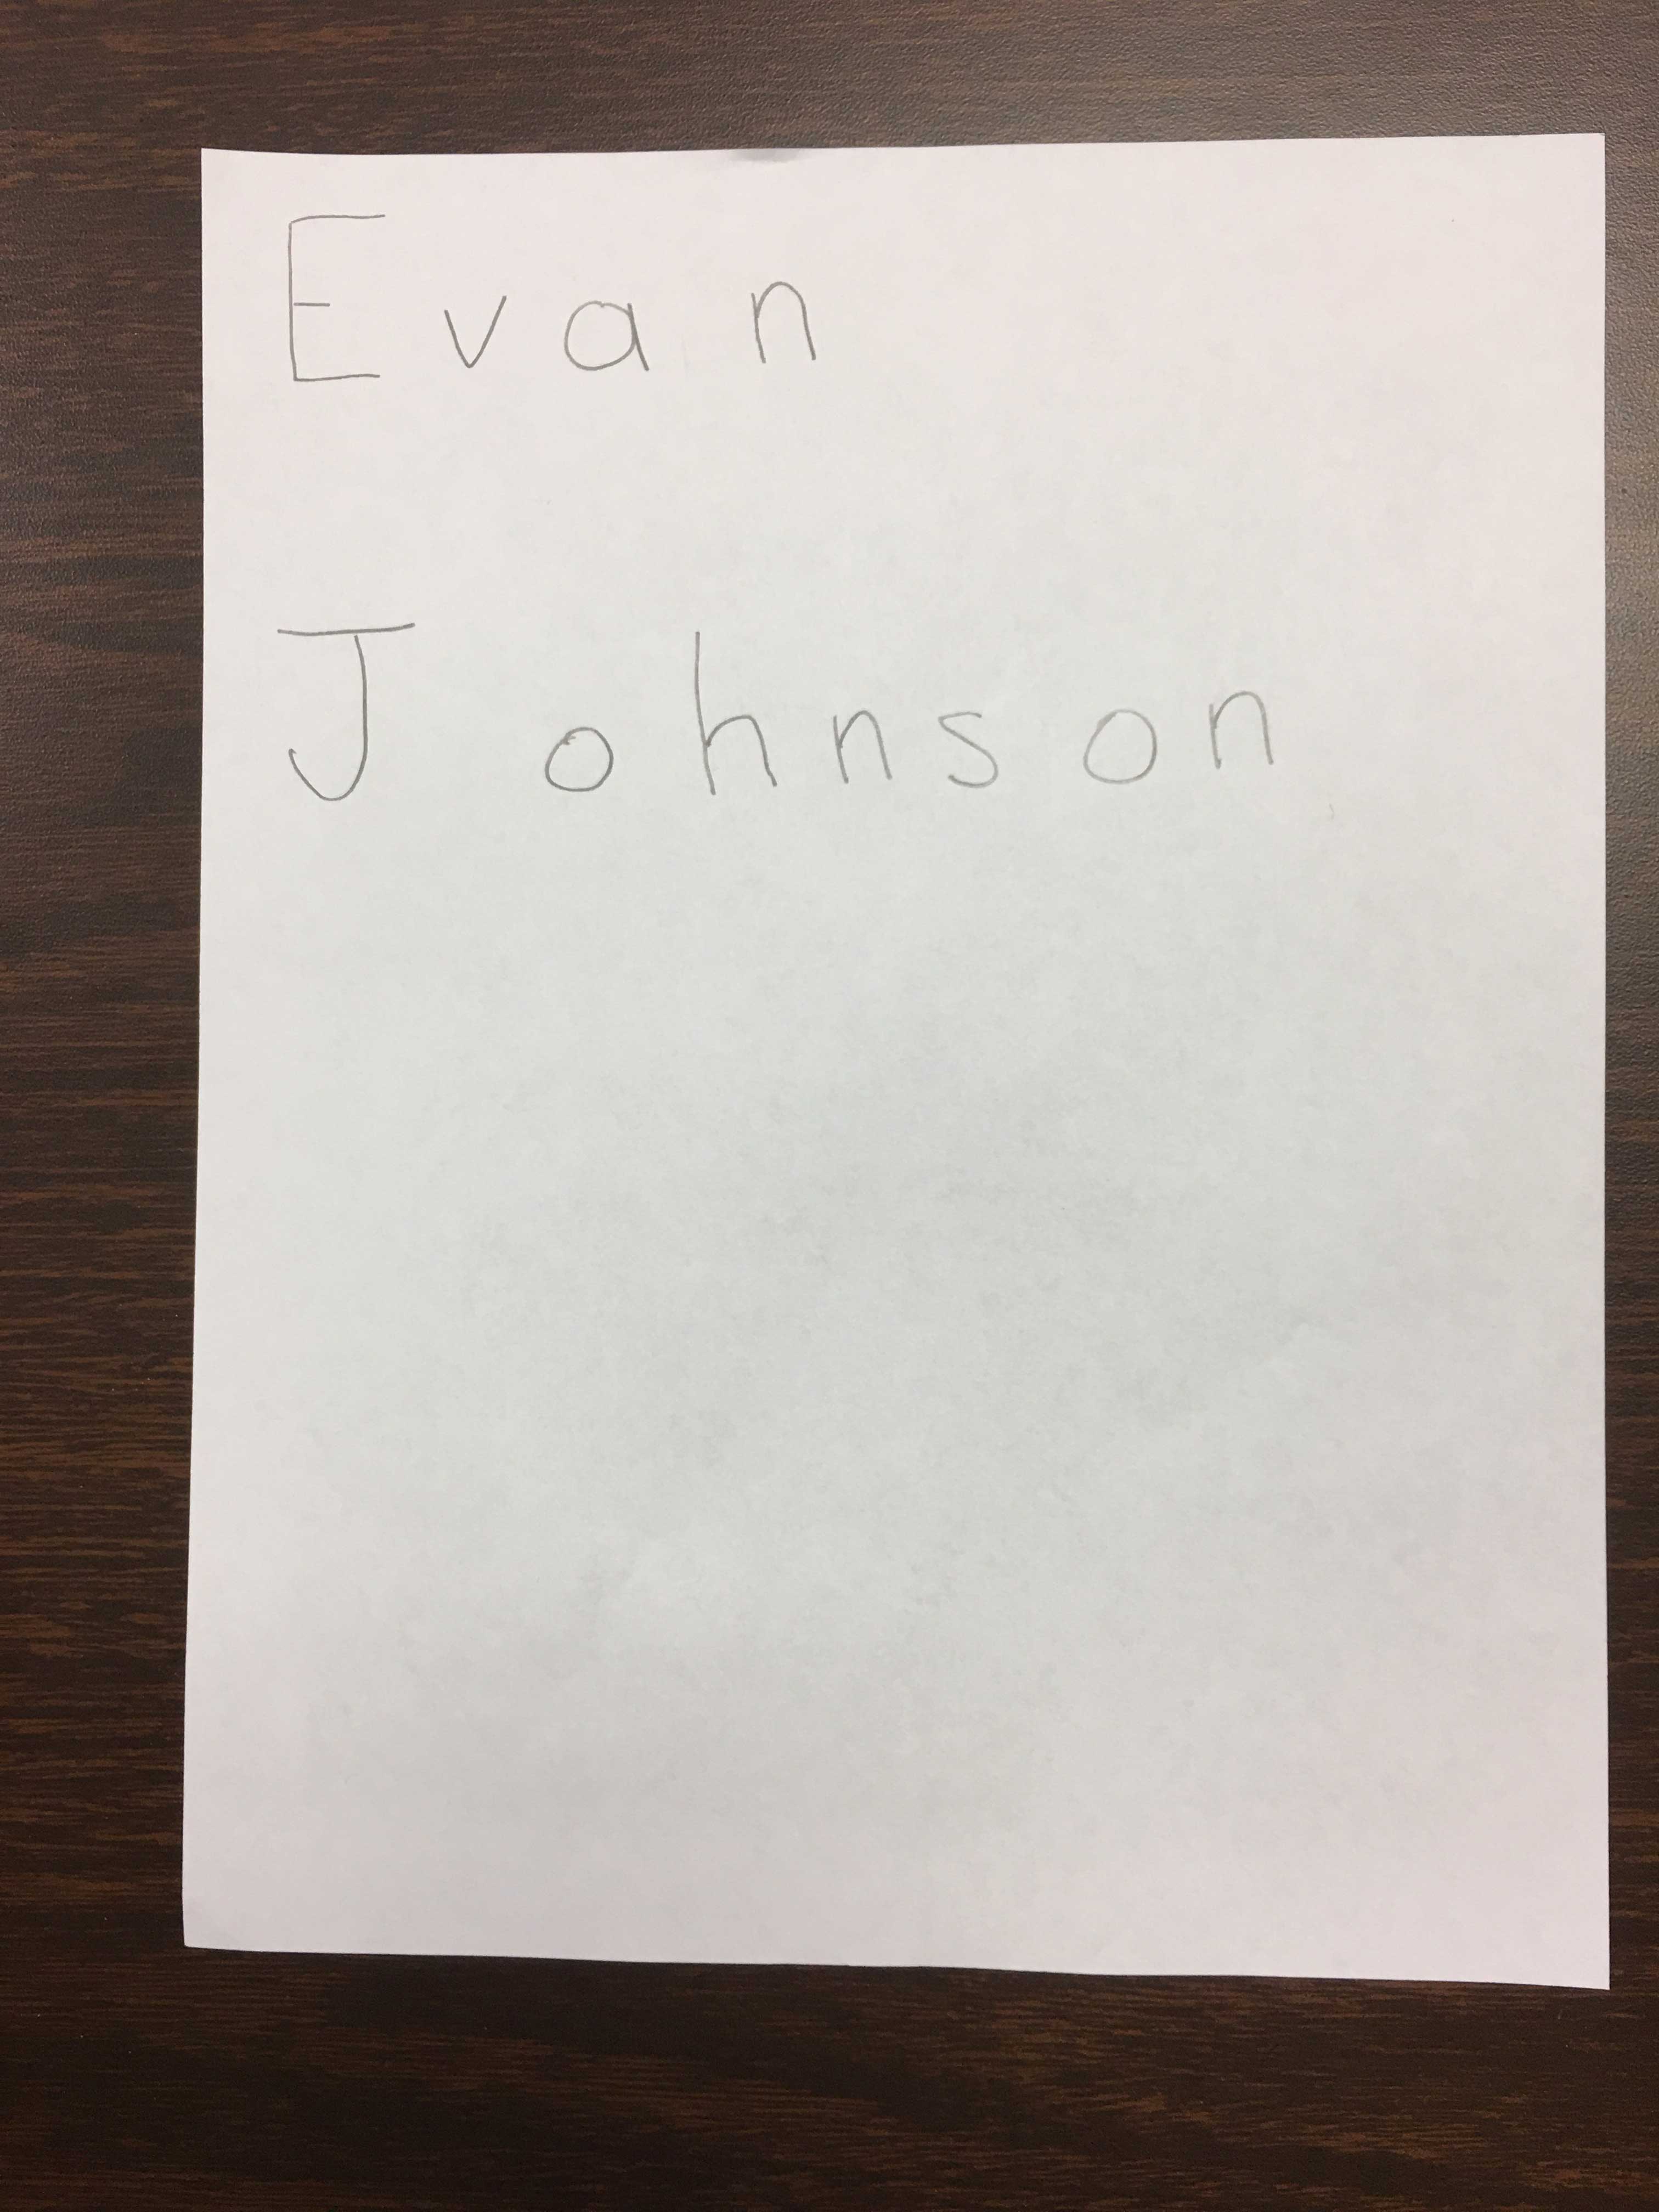 Evan
Johnson